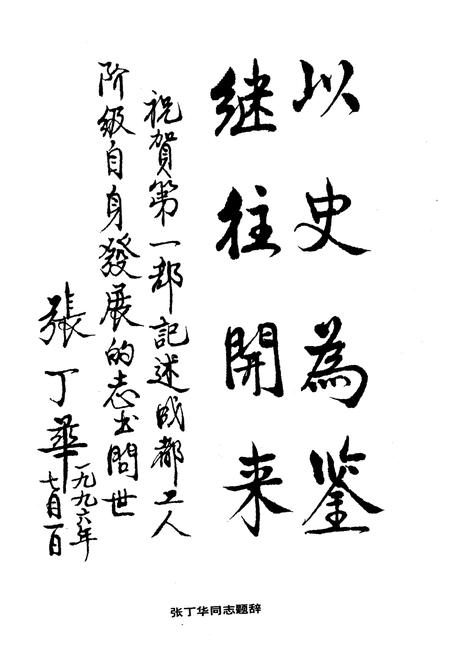 以史為鉴
继往開来
祝賀第一部記述成都工人
阶級自身發展的志书問世
張丁華
一九九六年
七月一日
张丁华同志题辞